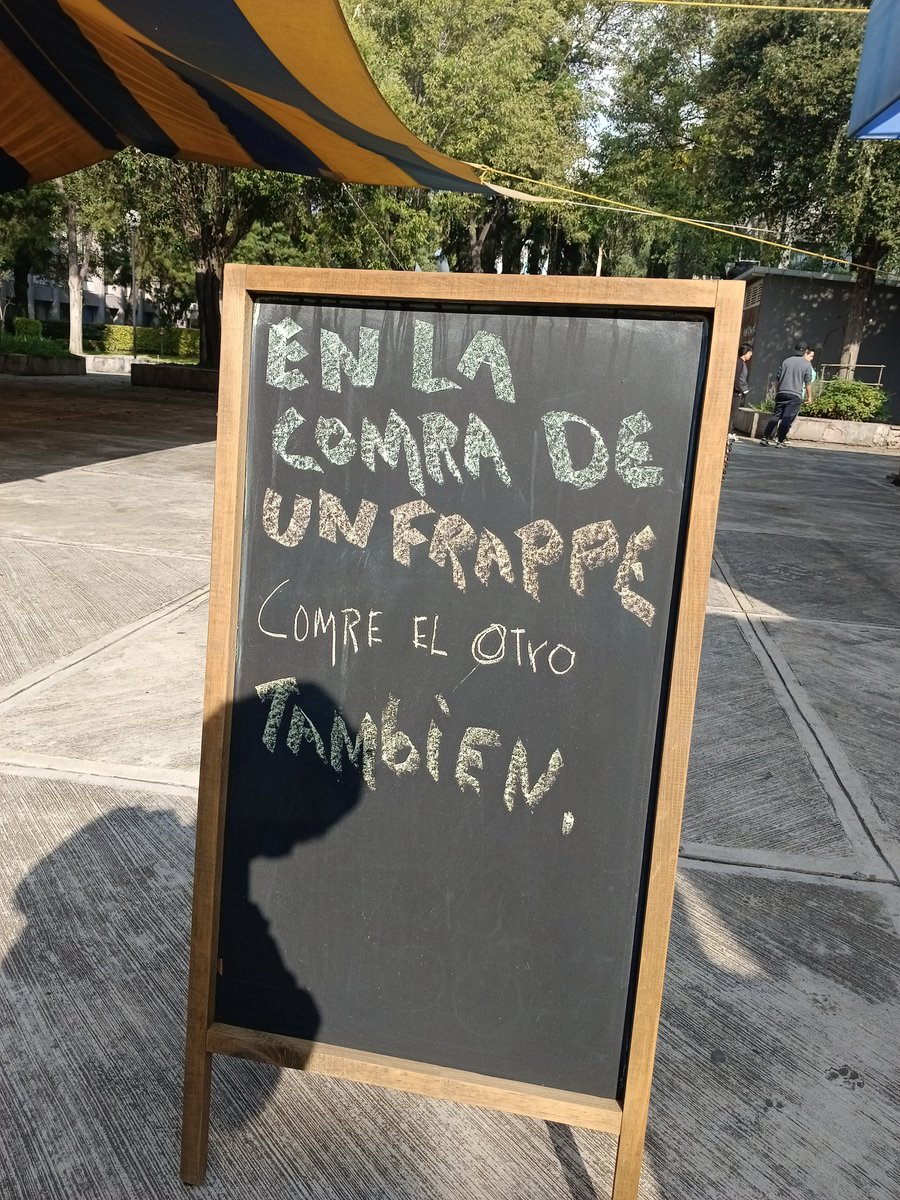 EN LA
COMRA DE
UN FRAPPE
COMRE EL OTRO
TAMBIÉN.